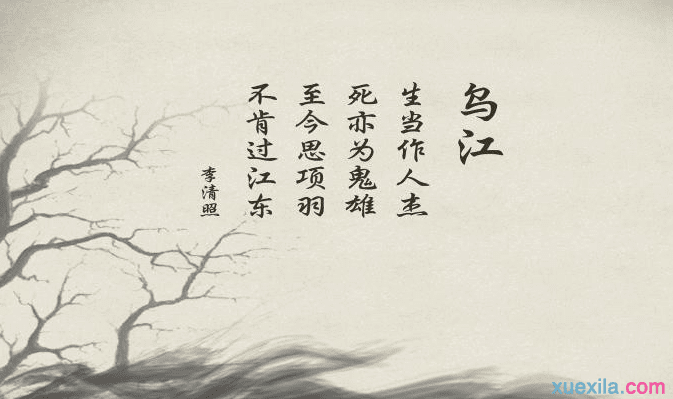 乌江
生当作人杰
死亦为鬼雄
至今思项羽
不肯过江东
李清照
xuexila.com